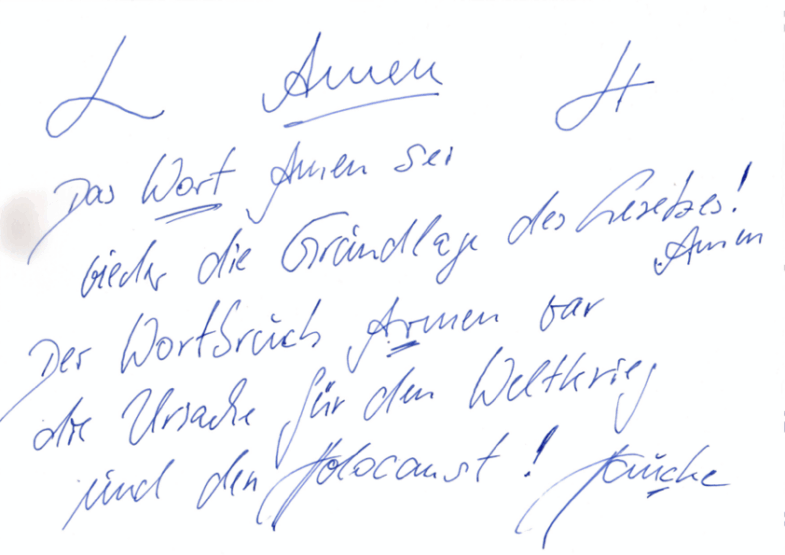 L Amen H
Das Wort Amen sei
wieder die Grundlage des Gesetzes!
Amen
Der Wortbruch Armen war
die Ursache für den Weltkrieg
und den Holocaust!